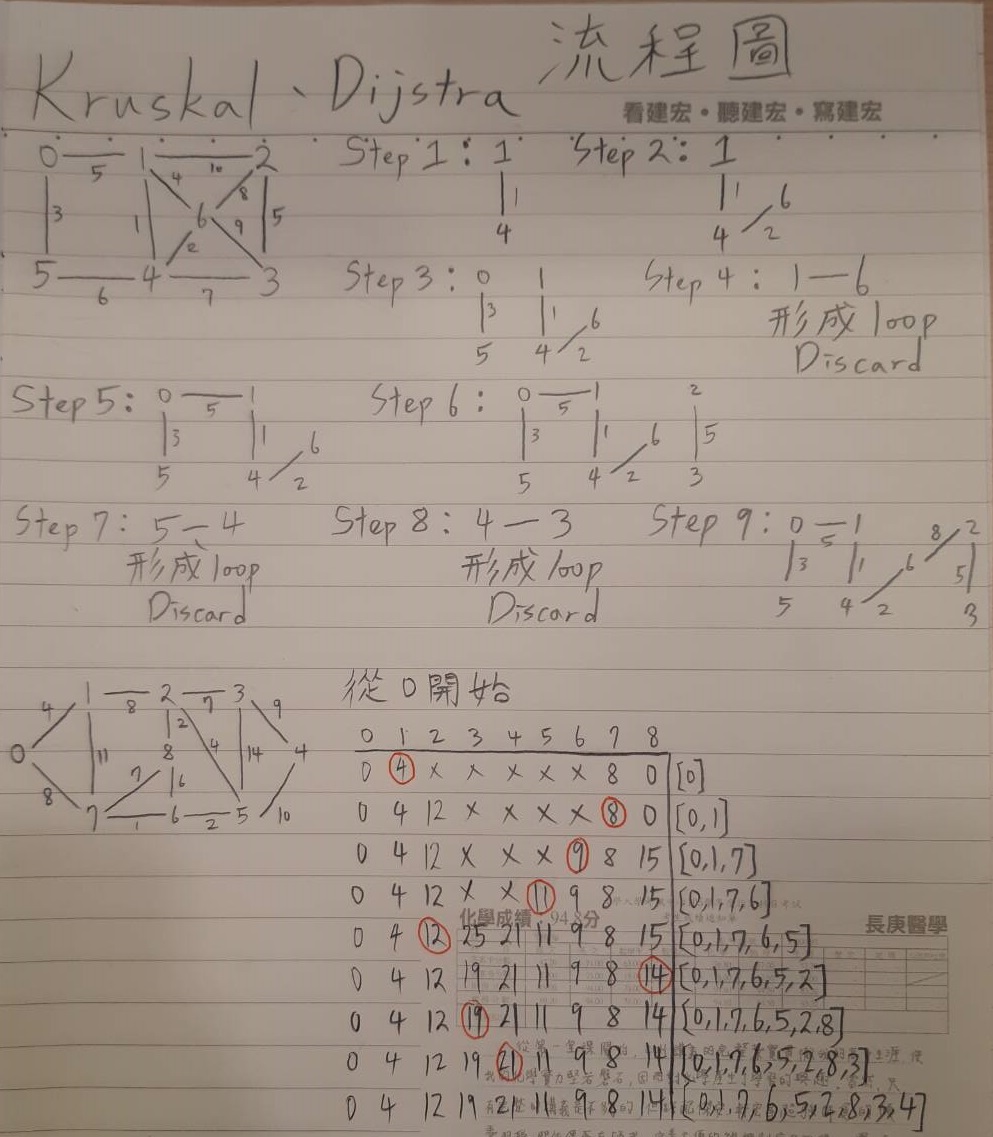 Kruskal、Dijstra 流程圖
看建宏・聽建宏・寫建宏
0 5 1 10 2
3 1 4 6 8 9 5
2
5 6 4 7 3
Step 1: 1
1
4
Step 2: 1
1 6
4 2
Step 3: 0 1
3 1 6
5 4 2
Step 4: 1—6
形成 loop
Discard
Step 5: 0 5 1
3 1 6
5 4 2
Step 6: 0 5 1 2
3 1 6 5
5 4 2 3
Step 7: 5—4
形成 loop
Discard
Step 8: 4—3
形成 loop
Discard
Step 9: 0 5 1 8 2
3 1 6 5
5 4 2 3
1 8 2 7 3
4 2 9
0 11 8 4 14 4
8 7 6
7 1 6 2 5 10
從 0 開始
0 1 2 3 4 5 6 7 8
0 4 x x x x x 8 0 [0]
0 4 12 x x x x 8 0 [0,1]
0 4 12 x x x 9 8 15 [0,1,7]
0 4 12 x x 11 9 8 15 [0,1,7,6]
化學成績 94.8分 長庚醫學
0 4 12 25 21 11 9 8 15 [0,1,7,6,5]
0 4 12 19 21 11 9 8 14 [0,1,7,6,5,2]
0 4 12 19 21 11 9 8 14 [0,1,7,6,5,2,8]
0 4 12 19 21 11 9 8 14 [0,1,7,6,5,2,8,3]
0 4 12 19 21 11 9 8 14 [0,1,7,6,5,2,8,3,4]